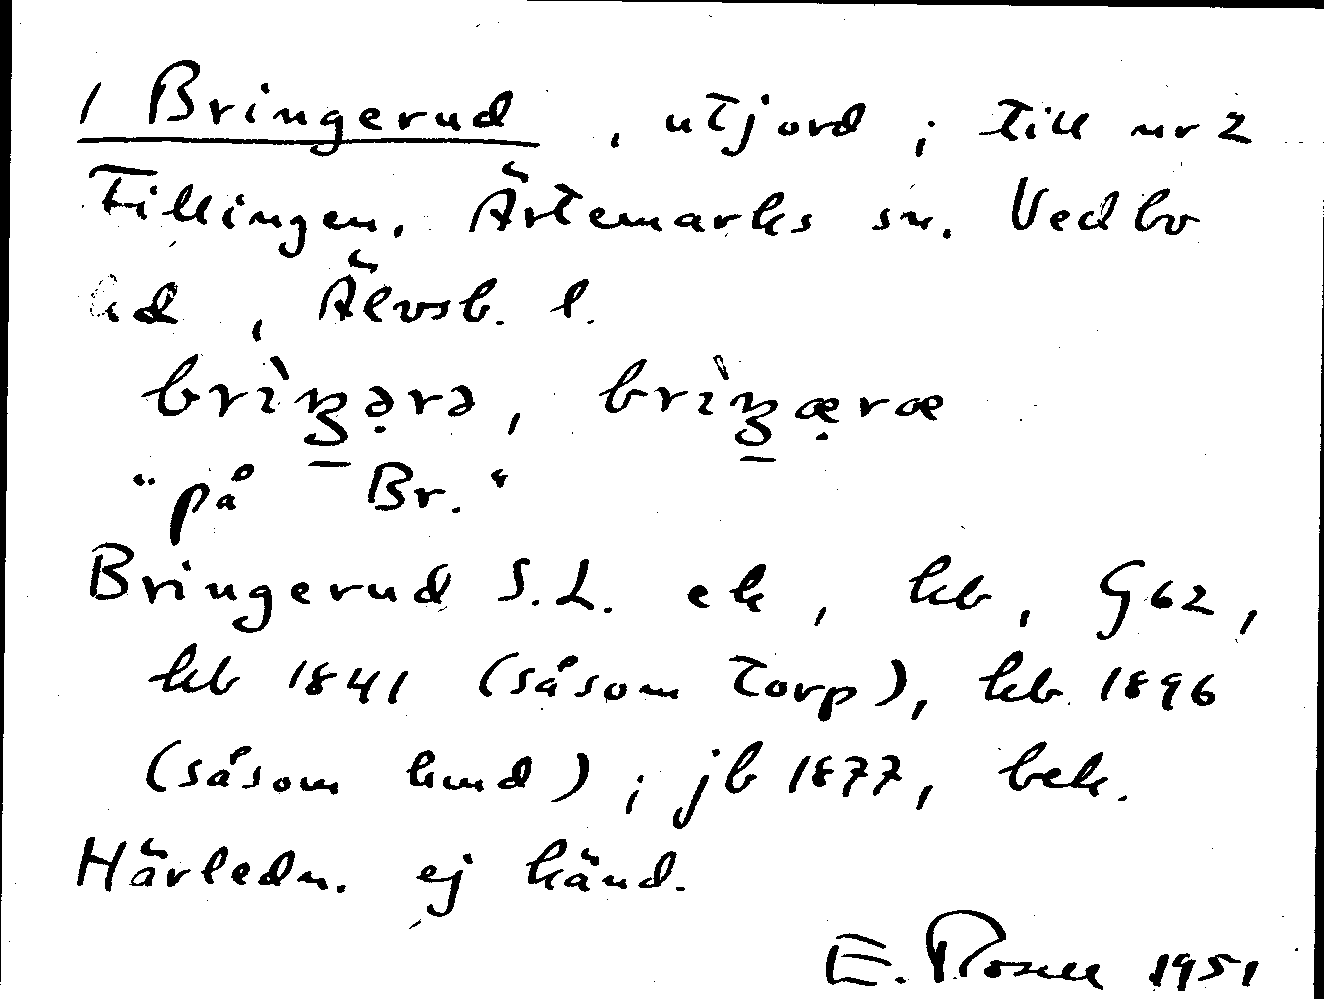 1 Bringerud, utjord; till nr 2
Tillingen. Ärtemarks sn. Vedbo
hd, Älvsb. l.
brìᶇ̲ə̣rə, brìᶇ̲æ̣ræ
"på Br."
Bringerud S.L. ek, kb, G62,
kb 1841 (såsom torp), kb 1896
(såsom hmd); jb 1877, bek.
Härledn. ej känd.
E. Rosell 1951